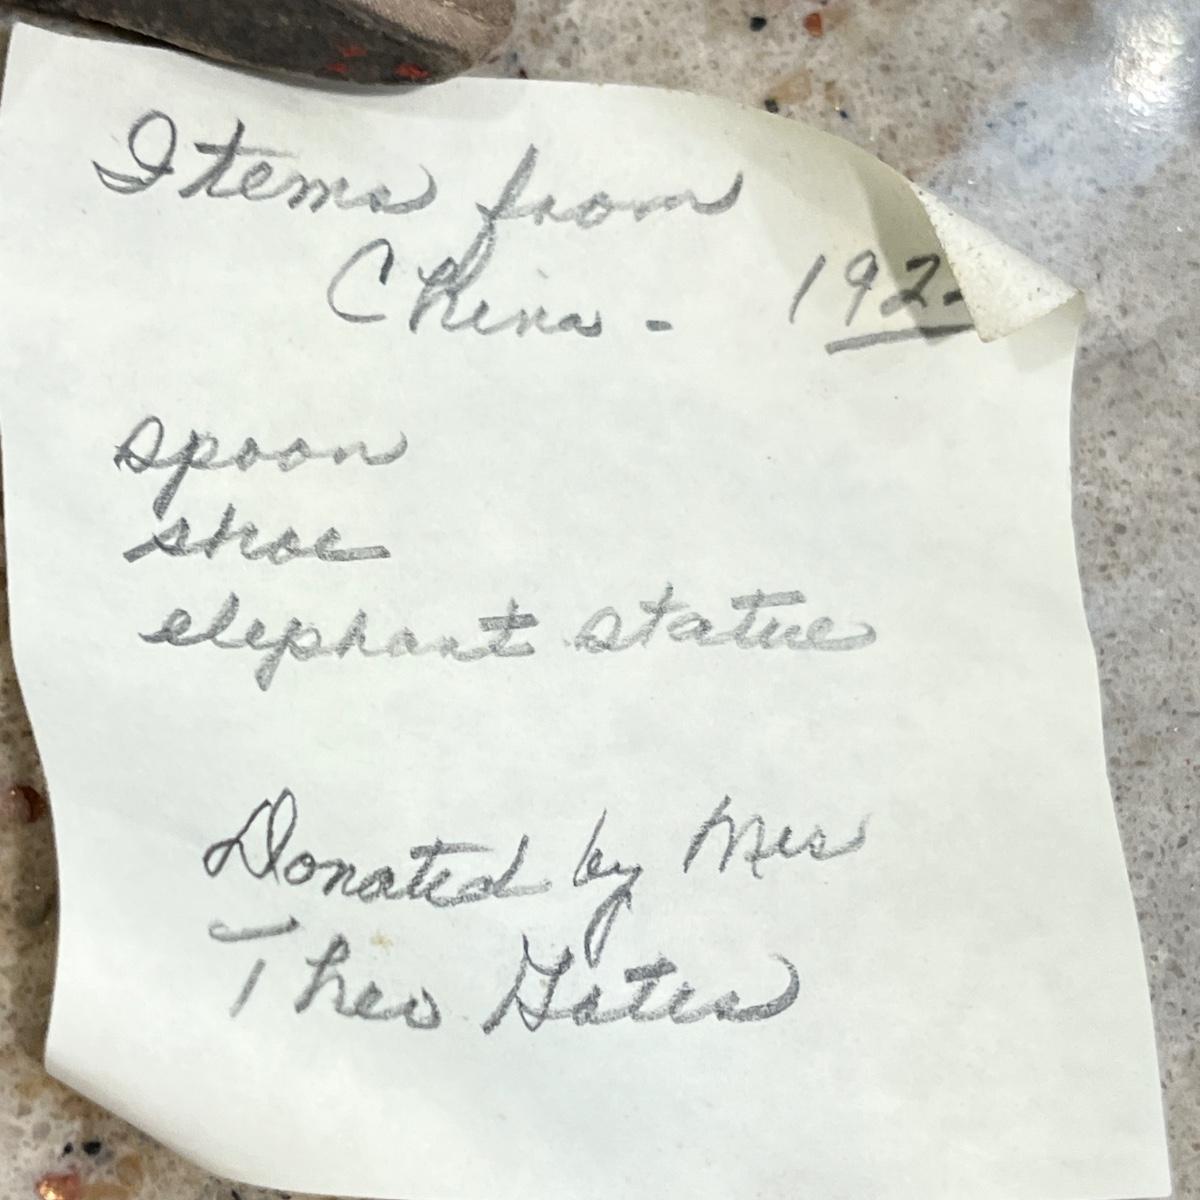 Items from
China - 192
spoon
shoe
elephant statue
Donated by Mrs
Theo Gates